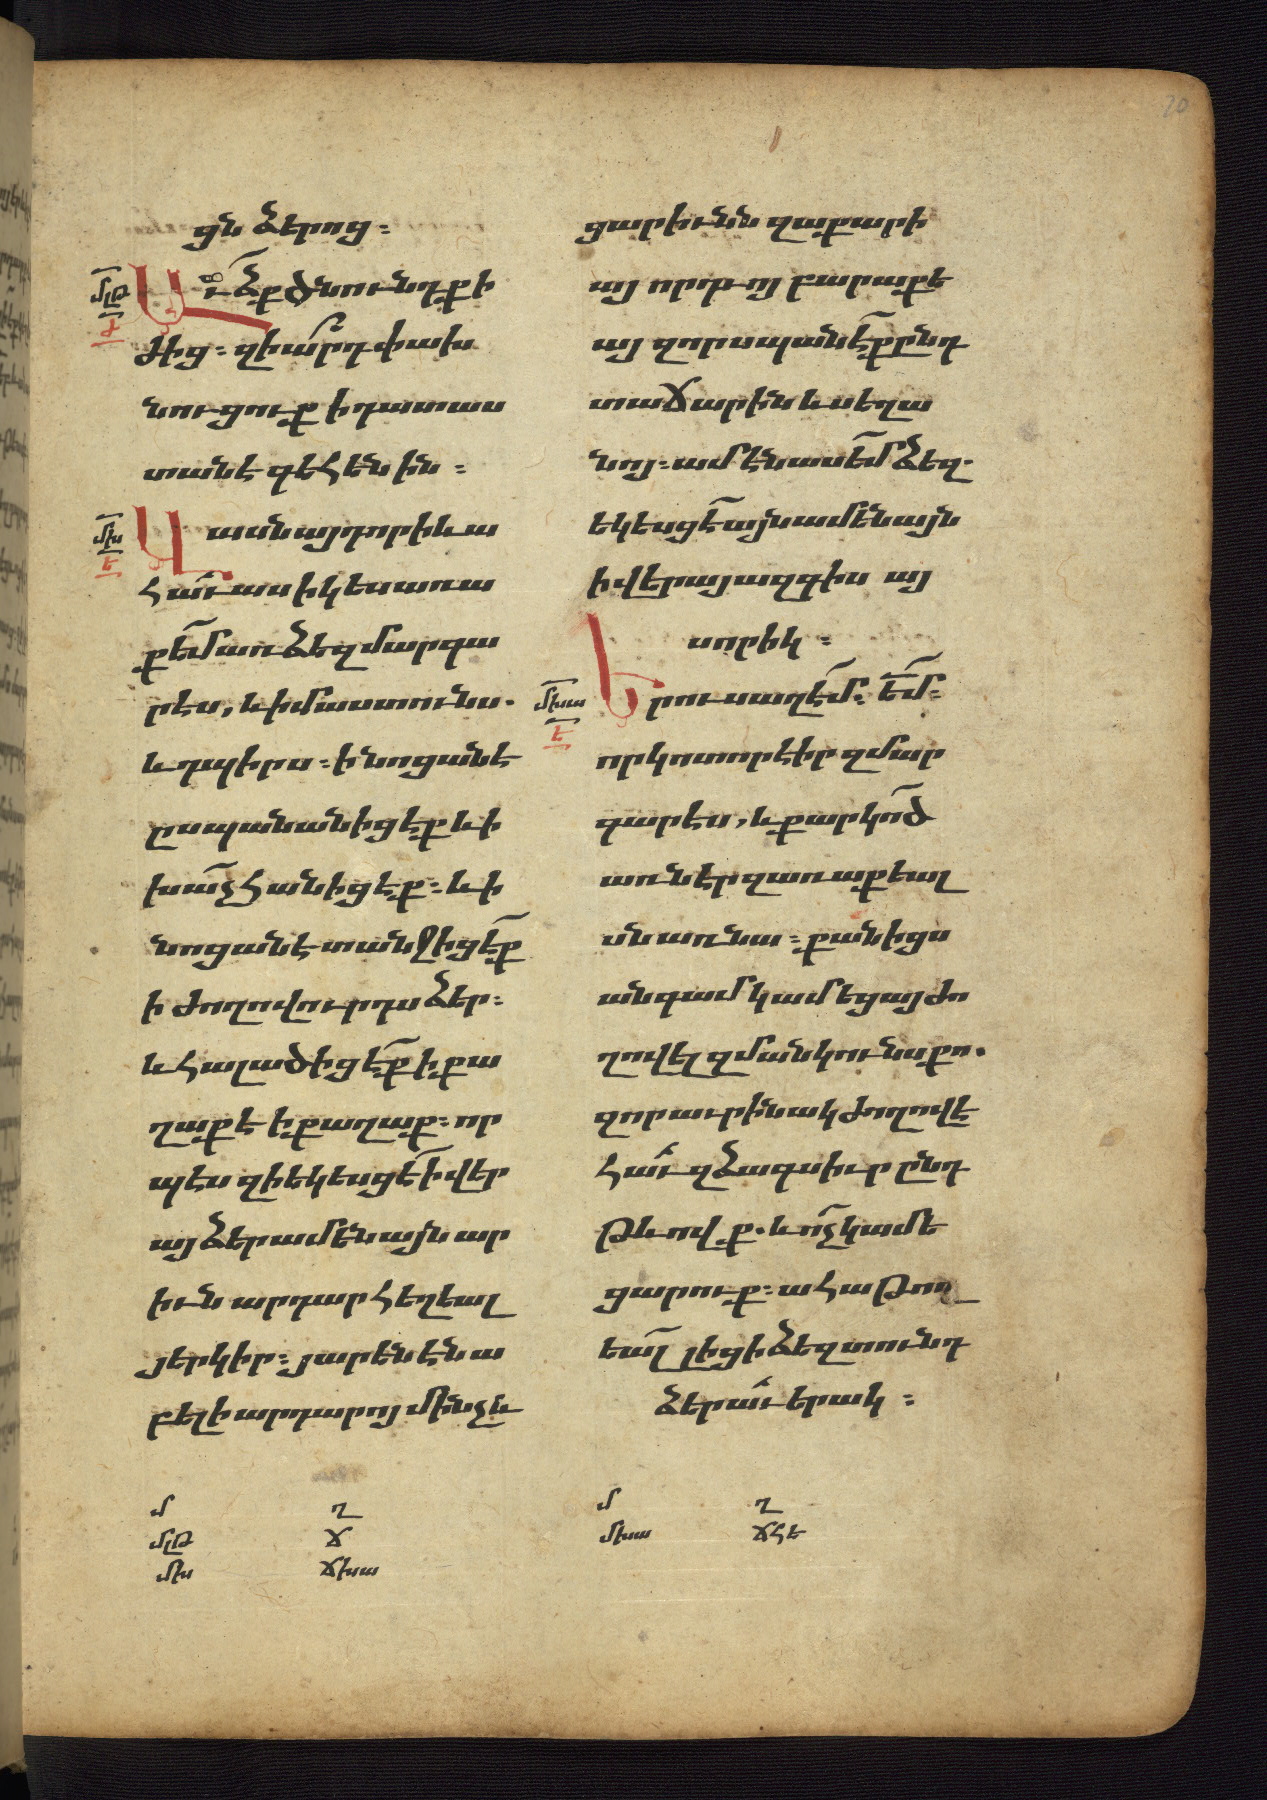 20
ցն ձերոց։
մլթ
ժ
Աւձք ծնունդք ի
ժից։ զիա՞րդ փախ
նուցուք ի դատաս
տանէ գեհենին։
մխ
ե
Վասն այդորիկ ա
հաւասիկ ես առա
քեմ առ ձեզ մարգա
րէս, և իմաստունս.
և դպիրս։ ի նոցանէ
ըսպանանիցէք և ի
խաչ հանիցէք։ և ի
նոցանէ տանջիցէք
ի ժողովուրդս ձեր։
և հալածիցէք ի քա
ղաքէ ի քաղաք։ որ
պէս զի եկեսցէ ի վեր
այ ձեր ամենայն ար
իւն արդար հեղեալ
յերկիր։ յարենէն ա
բելի արդարոյ մինչև
ցարիւնն զաքարի
այ որդւոյ բարաքե
այ զոր սպանէք ընդ
տաճարին և սեղա
նոյ։ ամէն ասեմ ձեզ.
եկեսցէ այս ամենայն
ի վերայ ազգիս այ
սորիկ։
մխա
ե
Երուսաղէմ։ եմ։
որ կոտորէիր զմար
գարէս, և քարկոծ
առնէր զառաքեալ
սն առ նա։ քանիցս
անգամ կամեցայ ժո
ղովել զմանկունս քո.
զոր աւրինակ ժողովէ
հաւ զձագս իւր ընդ
թևովք. և ոչ կամե
ցարուք։ ահա թող
եալ լիցի ձեզ տունդ
ձեր աւերակ։
մ ղ
մլթ ճ
մխ ճխա
մ ղ
մխա ճհե